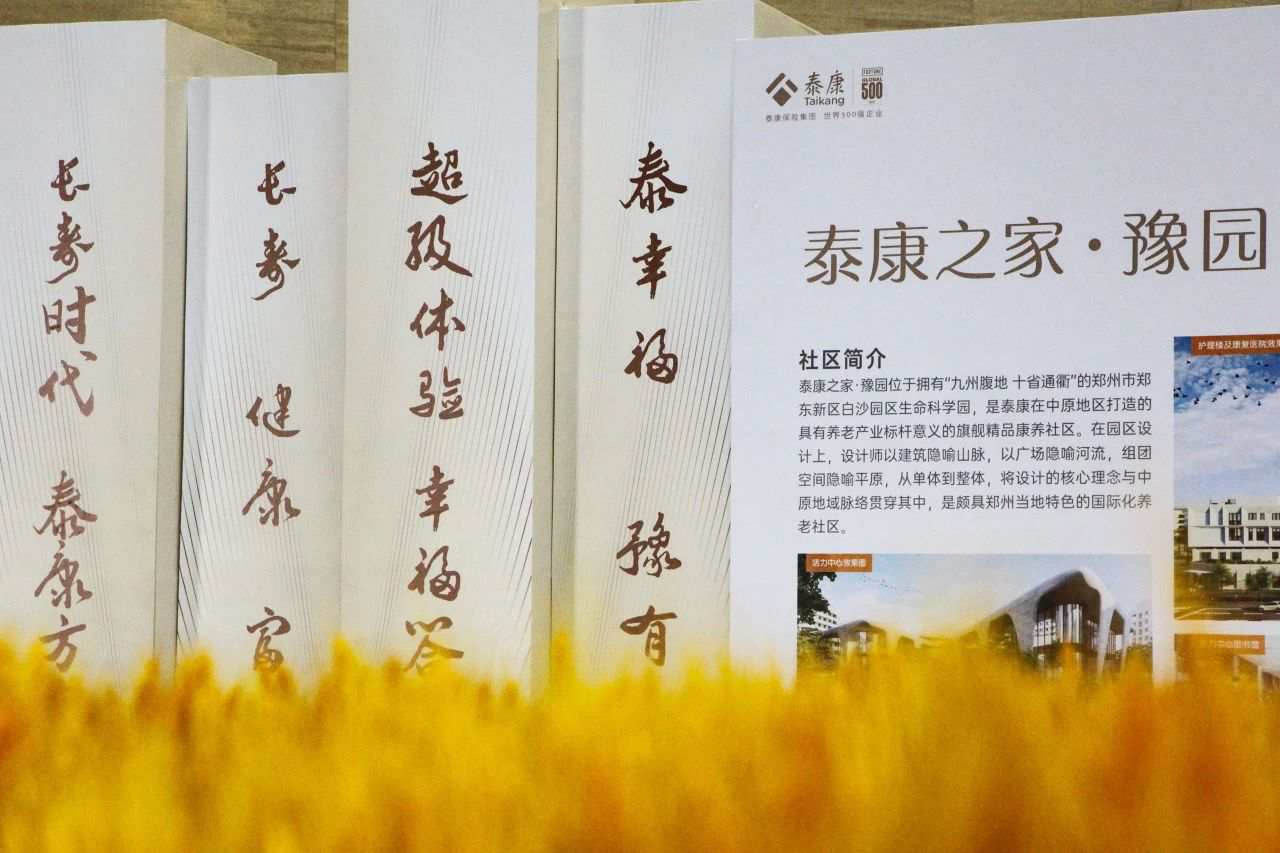 长寿时代 泰康方
长寿 健康 富
超级体验 幸福答
泰幸福 豫有
泰康
Taikang
FORTUNE
GLOBAL
500
泰康保险集团 世界500强企业
泰康之家·豫园
社区简介
泰康之家·豫园位于拥有“九州腹地 十省通衢”的郑州市郑
东新区白沙园区生命科学园，是泰康在中原地区打造的
具有养老产业标杆意义的旗舰精品康养社区。在园区设
计上，设计师以建筑隐喻山脉，以广场隐喻河流，组团
空间隐喻平原，从单体到整体，将设计的核心理念与中
原地域脉络贯穿其中，是颇具郑州当地特色的国际化养
老社区。
活力中心效果图
护理楼及康复医院效果
活力中心图书馆